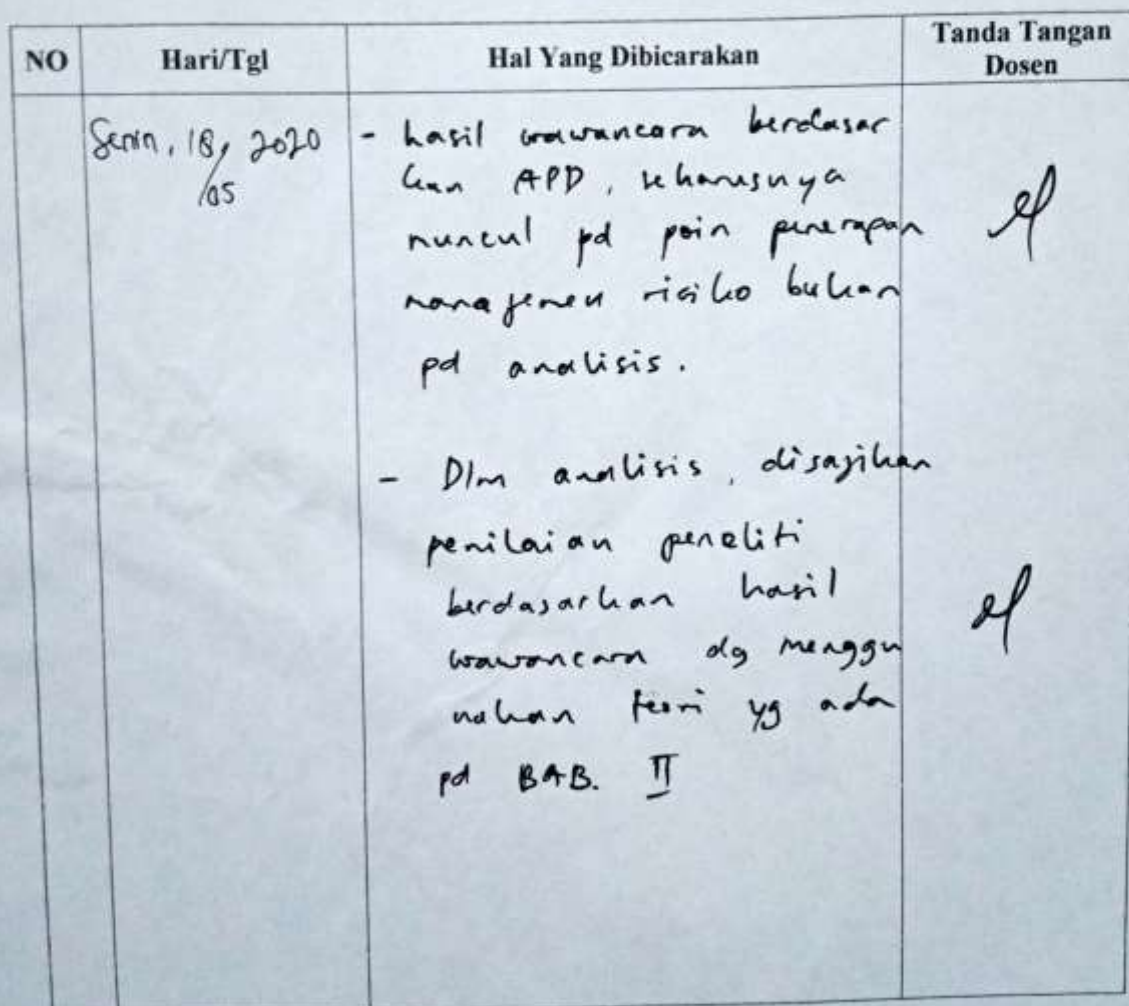 NO Hari/Tgl Hal Yang Dibicarakan Tanda Tangan
Dosen
Senin, 18/05 2020
- hasil wawancara berdasar
kan APD, seharusnya
muncul pd poin penerapan
manajemen risiko bukan
pd analisis.
- Dlm analisis, disajikan
penilaian peneliti
berdasarkan hasil
wawancara dg menggu
nakan teori yg ada
pd BAB. II